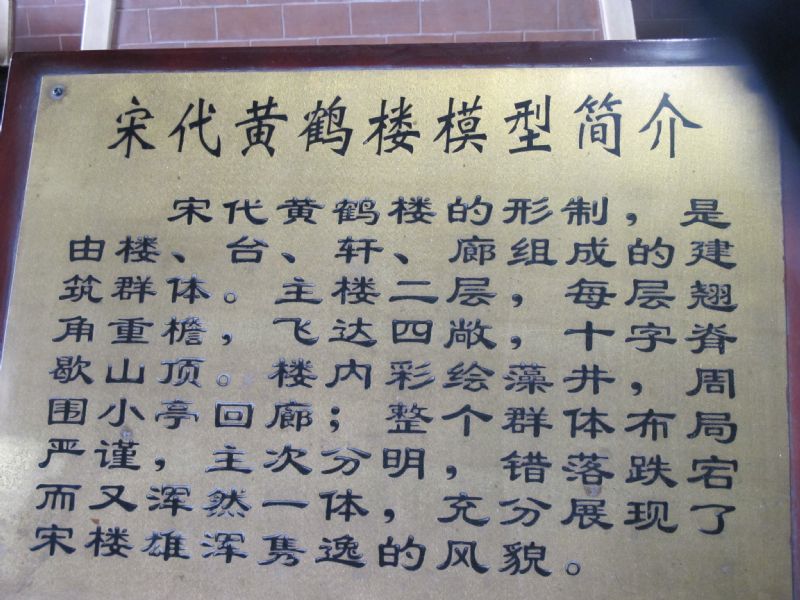 宋代黄鹤楼模型简介
宋代黄鹤楼的形制，是
由楼、台、轩、廊组成的建
筑群体。主楼二层，每层翘
角重檐，飞达四敞，十字脊
歇山顶。楼内彩绘藻井，周
围小亭回廊；整个群体布局
严谨，主次分明，错落跌宕
而又浑然一体，充分展现了
宋楼雄浑隽逸的风貌。